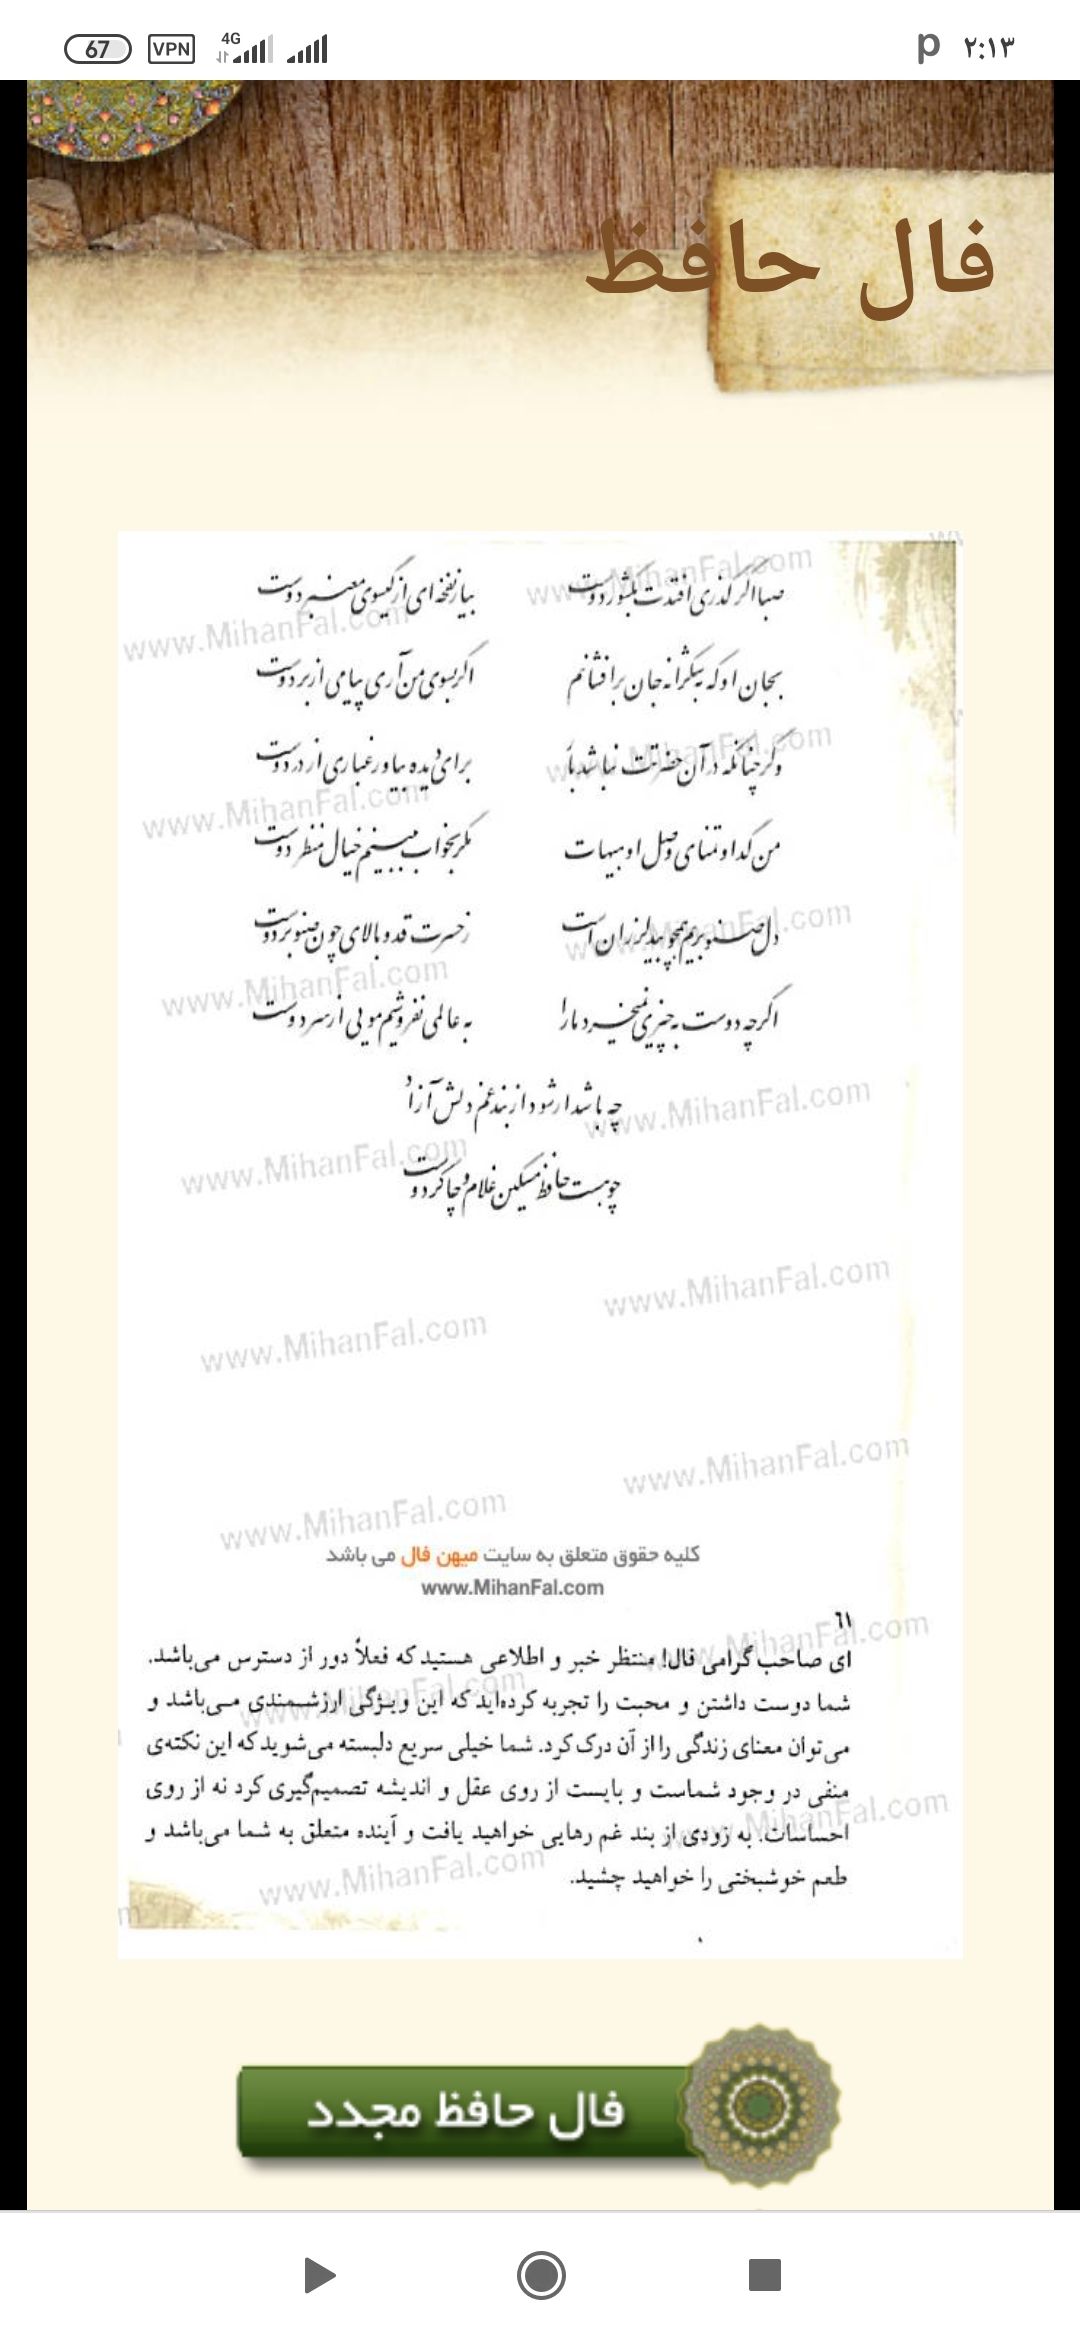 67 VPN 4G p ۲:۱۳
فال حافظ
صبا اگر گذری افتدت بکشور دوست
بیار نفحه ای از گیسوی معنبر دوست
بجان او که بشکرانه جان برافشانم
اگر بسوی من آری پیامی از بر دوست
وگر چنانکه در آن حضرتت نباشد بار
برای دیده بیاور غباری از در دوست
من گدا و تمنای وصل او هیهات
مگر بخواب ببینم خیال منظر دوست
دل صنوبریم همچو بید لرزان است
ز حسرت قد و بالای چون صنوبر دوست
اگرچه دوست به چیزی نمیخرد ما را
به عالمی نفروشیم مویی از سر دوست
چه باشد ار شود از بند غم دلش آزاد
چو هست حافظ مسکین غلام و چاکر دوست
کلیه حقوق متعلق به سایت میهن فال می باشد
www.MihanFal.com
٦١
ای صاحب گرامی فال! منتظر خبر و اطلاعی هستید که فعلاً دور از دسترس می‌باشد.
شما دوست داشتن و محبت را تجربه کرده‌اید که این ویژگی ارزشمندی می‌باشد و
می‌توان معنای زندگی را از آن درک کرد. شما خیلی سریع دلبسته می‌شوید که این نکته‌ی
منفی در وجود شماست و بایست از روی عقل و اندیشه تصمیم‌گیری کرد نه از روی
احساسات. به زودی از بند غم رهایی خواهید یافت و آینده متعلق به شما می‌باشد و
طعم خوشبختی را خواهید چشید.
فال حافظ مجدد